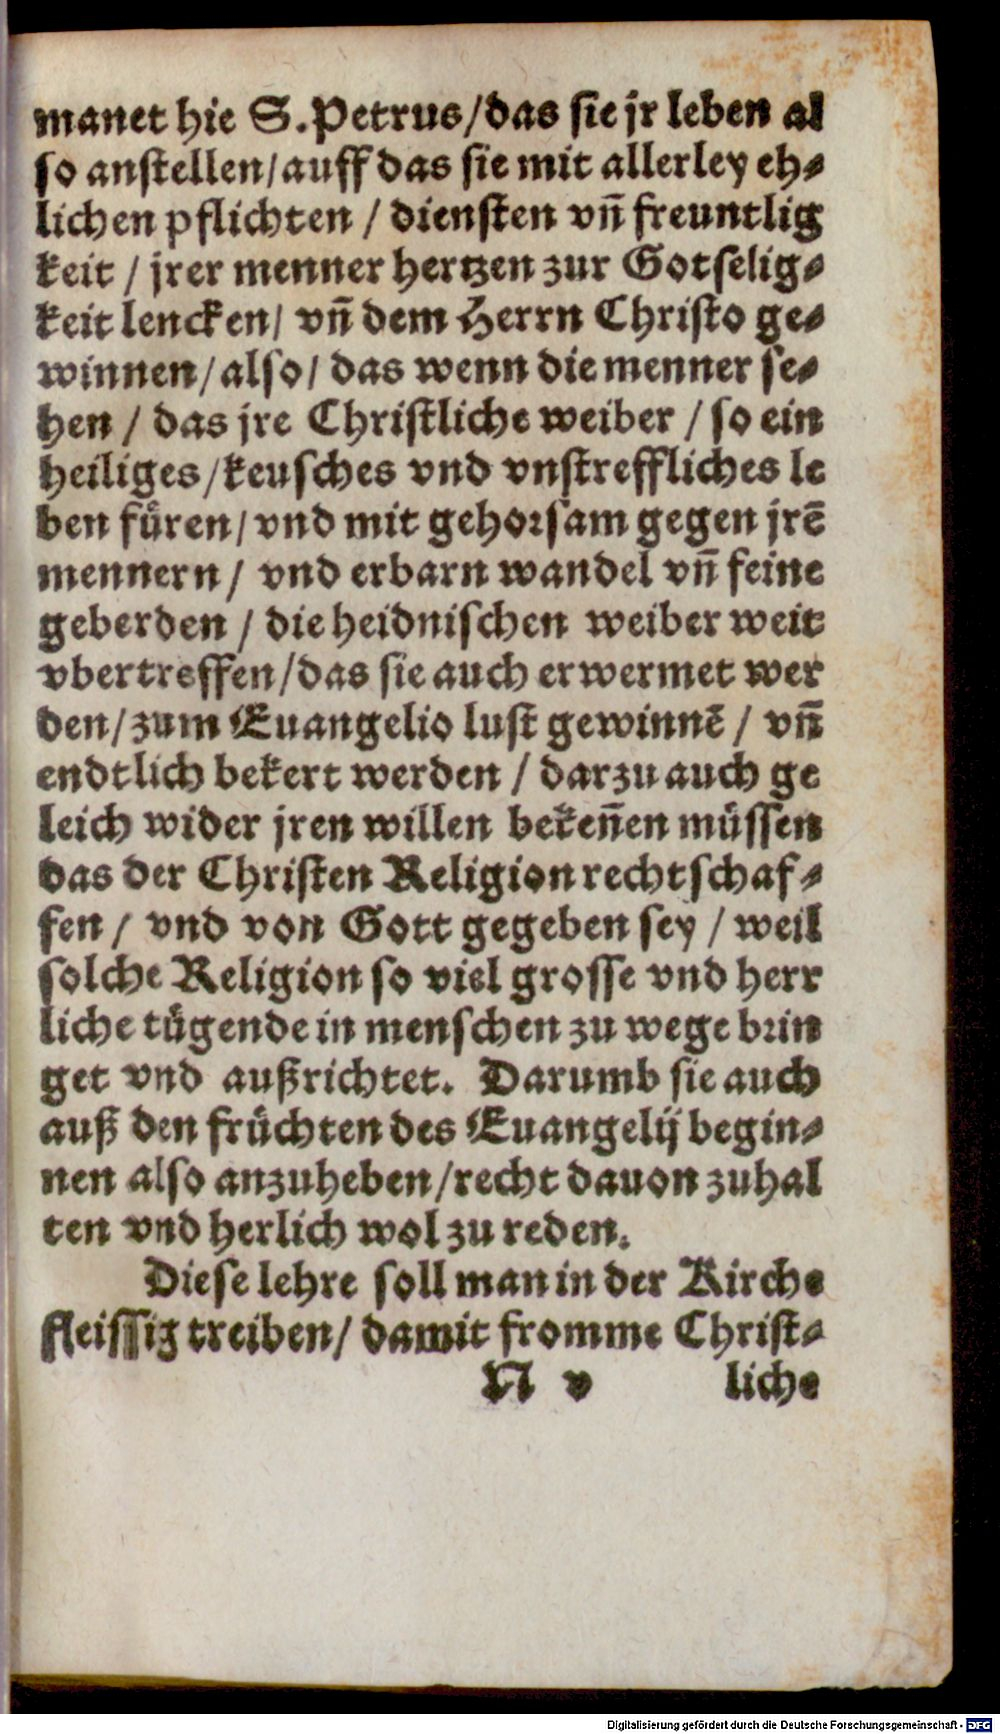 manet hie S. Petrus/das sie jr leben al
so anstellen/auff das sie mit allerley eh⸗
lichen pflichten / diensten vñ freuntlig
keit / jrer menner hertzen zur Gotselig⸗
keit lencken/ vñ dem Herrn Christo ge⸗
winnen/also/ das wenn die menner se⸗
hen / das jre Christliche weiber / so ein
heiliges/keusches vnd vnstreffliches le
ben fuͤren/vnd mit gehorsam gegen jrẽ
mennern/ vnd erbarn wandel vñ feine
geberden / die heidnischen weiber weit
vbertreffen/das sie auch erwermet wer
den/zum Euangelio lust gewinnẽ / vñ
endtlich bekert werden / darzu auch ge
leich wider jren willen bekeñen muͤssen
das der Christen Religion rechtschaf⸗
fen / vnd von Gott gegeben sey / weil
solche Religion so viel grosse vnd herr
liche tuͤgende in menschen zu wege brin
get vnd außrichtet. Darumb sie auch
auß den fruͤchten des Euangelij begin⸗
nen also anzuheben/recht dauon zuhal
ten vnd herlich wol zu reden.
Diese lehre soll man in der Kirche
fleissig treiben/ damit fromme Christ⸗
N v liche
Digitalisierung gefördert durch die Deutsche Forschungsgemeinschaft - DFG